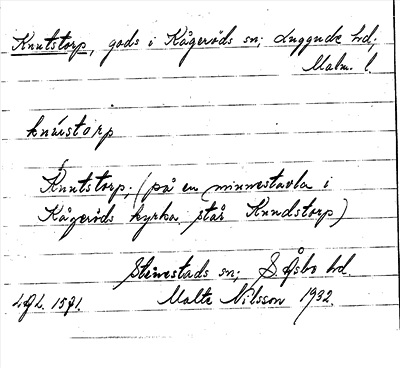 Knutstorp, gods i Kågeröds sn; Luggude hd,
Malm. l.
knustorp
Knutstorp; (på en minnestavla i
Kågeröds kyrka står Knudstorp)
Stenestads sn; S. Åsbo hd.
Malte Nilsson 1932.